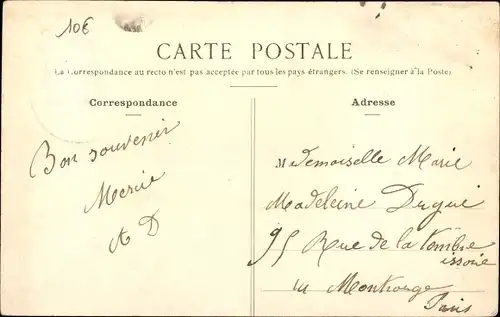 10€
CARTE POSTALE
La Correspondance au recto n'est pas acceptée par tous les pays étrangers. (Se renseigner à la Poste)
Correspondance
Adresse
Bon souvenir
Mercie
A D
Mademoiselle Marie
Madeleine Dugué
95 Rue de la Tombe
issoire
Montrouge
Paris